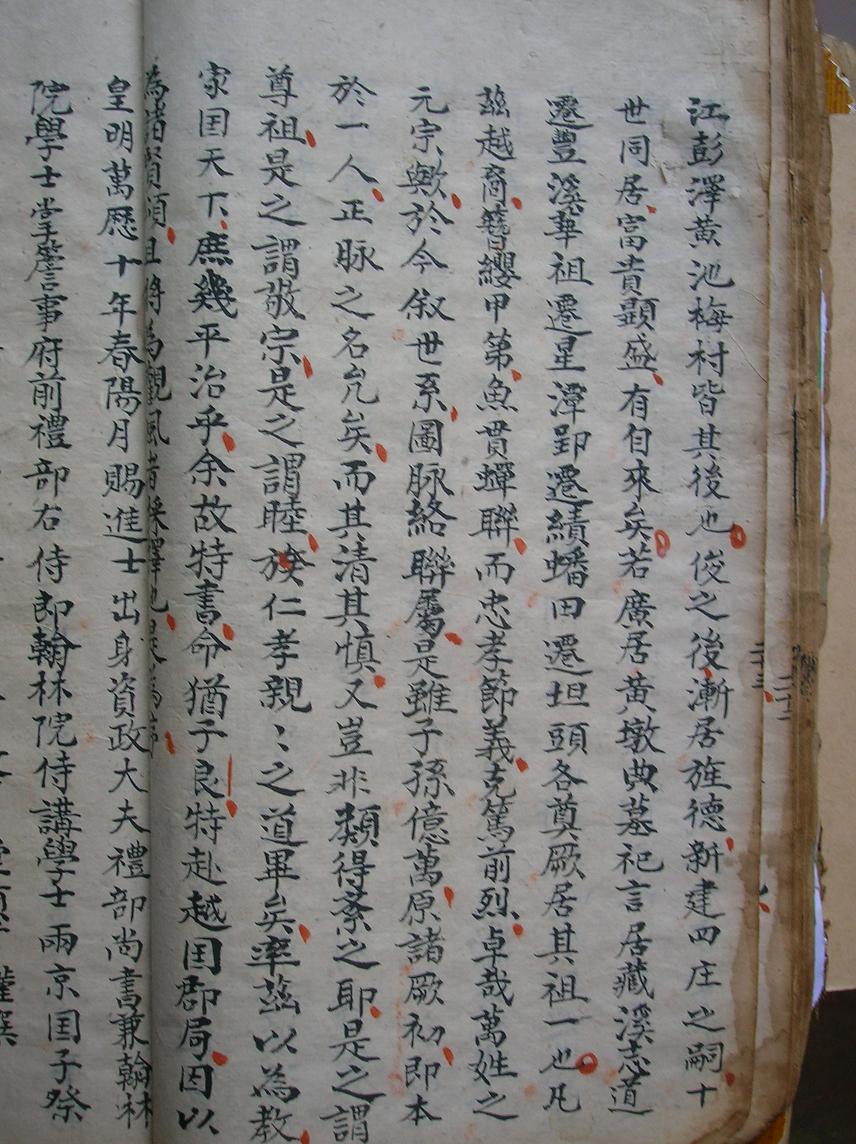 江彭澤黄池梅村皆其後也俊之後漸居旌德新建四庄之嗣十
世同居富貴顯盛有自來矣若廣居黄墩典墓祀言居藏溪志道
遷豐溪華祖遷星潭郢遷績蟠田遷坦頭各奠厥居其祖一也凡
兹越裔簪纓甲第魚貫蟬聯而忠孝節義克篤前烈卓哉萬姓之
元宗歟於今叙世系圖脉絡聯屬是雖子孫億萬原諸厥初即本
於一人正脉之名允矣而其清其慎又豈非纇得紊之耶是之謂
尊祖是之謂敬宗是之謂睦族仁孝親〻之道畢矣率兹以為教
家囯天下庶幾平治乎余故特書命猶子良特赴越囯郡局因以
為諸賢須且將為觀風者採擇也
皇明萬歷十年春陽月賜進士出身資政大夫禮部尚書兼翰林
院學士掌詹事府前禮部右侍郎翰林院侍講學士兩京囯子祭